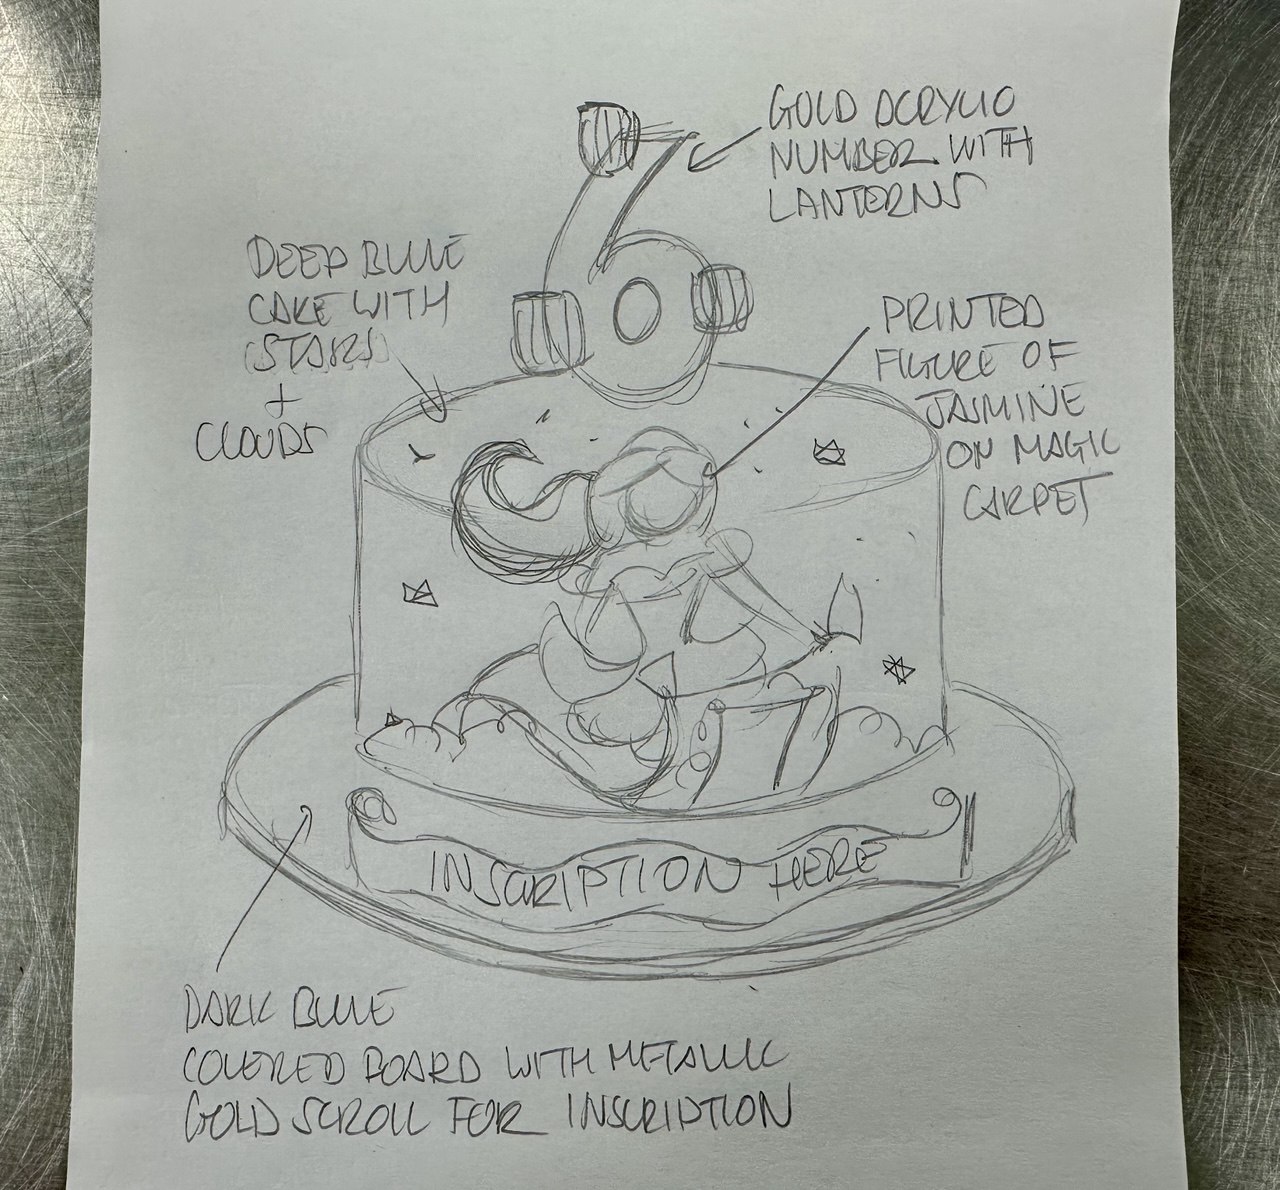 GOLD ACRYLIC
NUMBER WITH
LANTERNS
6
DEEP BLUE
CAKE WITH
(STARS)
+
CLOUDS
PRINTED
FIGURE OF
JASMINE
ON MAGIC
CARPET
INSCRIPTION HERE
DARK BLUE
COVERED BOARD WITH METALLIC
GOLD SCROLL FOR INSCRIPTION